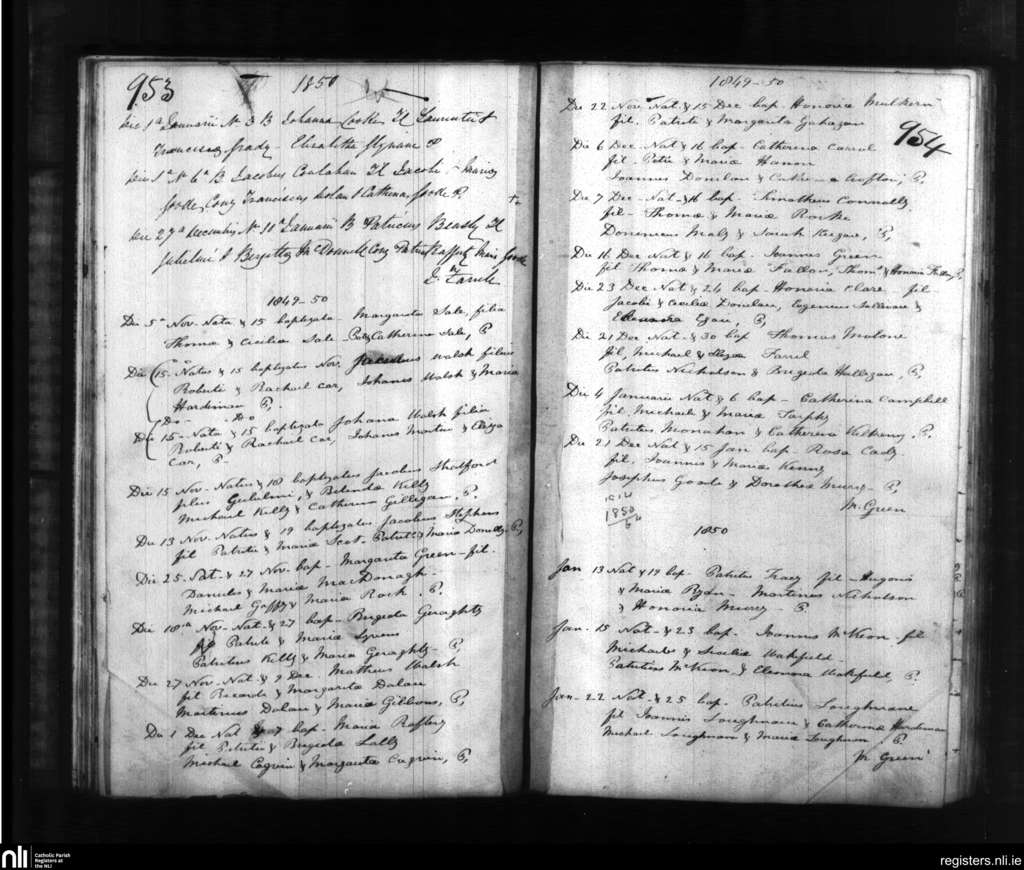 953
1850
Die 1a Januarii N 3 B Johanna Cooke Fl Laurentii &
Franciscus Grady Elizabetha Flynn P
Jacobus Fl Jacobi
Franciscus Nolan & Catherina P
Die 27a Decembris N 11a Januarii B Patricius Fl
J.
1849-50
Die 5a Nov. Nata & 15 baptizata Margarita Sale, filia
Thoma & Cecilia Sale Catherina Sale, P
Die 15 Natus & 15 baptizatus Nov. Jacobus Walsh filius
Roberti & Rachael Car, Johanes Walsh & Maria
Hardiman P,
Do - Do
Die 15 Nata & 15 baptizata Johana Walsh filia
Roberti & Rachael Car, Johanes Martin & Eliza
Car, P
Die 15 Nov. Natus & 18 baptizatus Jacobus
filius Gulielmi & Belinda Kelly
Michael Kelly & Catherina Gilligan, P.
Die 13 Nov. Natus & 19 baptizatus Jacobus Stephens
fil Patritii & Maria Scot Patritius & Maria Donelly P,
Die 25 Nat. & 27 Nov. bap - Margarita Green - fil.
Danielis & Maria MacDonagh.
Michael & Maria Rock. P.
Die 18a Nov. Nat. & 27 bap - Brigeda Geraghty
Patritii & Maria Lyons
Patritius Kelly & Maria Geraghty - P
Die 27 Nov. Nat. & 9 Dec Matheus Walsh
fil Ricardi & Margarita Dolan
Martinus Dolan & Maria Gibbons, P,
Die 1 Dec Nat & 7 bap - Maria Raftery
fil Patritii & Brigeda Lally
Michael & Margarita P,
1849-50
Die 22 Nov. Nat. & 15 Dec bap - Honoria Mulkern
fil. Patritii & Margarita Gahagan
954
Die 6 Dec Nat & 16 bap - Catherina Carrol
fil Petri & Maria Hanon
Joannes Donelan & Crofton, P,
Die 7 Dec - Nat - & 16 bap - Timotheus Connolly
fil - Thoma & Maria Rourke
& Sarah Keegan, P,
Die 16 Dec Nat & 16 bap - Joannes Green
fil Thoma & Maria Fallon, Thoms & Honoria Fallon P,
Die 23 Dec Nat & 24 bap - Honoria Clare - fil
Jacobi & Cecilia Donelan, Eugenius Sullivan &
Egan, P,
Die 21 Dec Nat - & 30 bap Thomas Malone
fil, Michael & Farrel
Patritius Nicholson & Brigeda Hallagan, P,
Die 4 Januarii Nat & 6 bap - Catherina Campbell
fil Michael & Maria
Patritius Monahan & Catherina P.
Die 21 Dec Nat & 15 Jan bap - Rosa Cady
fil. Joannis & Maria Kenny
Josephus & Dorothea Murry - P,
M. Green
1850
1850
Jan 13 Nat & 19 bap - Patritius Tracy fil - Hugonis
& Maria Ryan - Martinus Nicholson
& Honoria Murry - P
Jan - 15 Nat - & 23 bap - Joannes McKeon - fil
Michael & Wakfield -
Patritius McKeon & Eleonora Wakfield, P.
Jan - 22 Nat. & 25 bap - Patritius Loughnane
fil Joannis Loughnane & Catherina Hardiman
Michael Loughnan & Maria Loughnan P.
M. Green
nli
Catholic Parish
Registers at
the NLI
registers.nli.ie